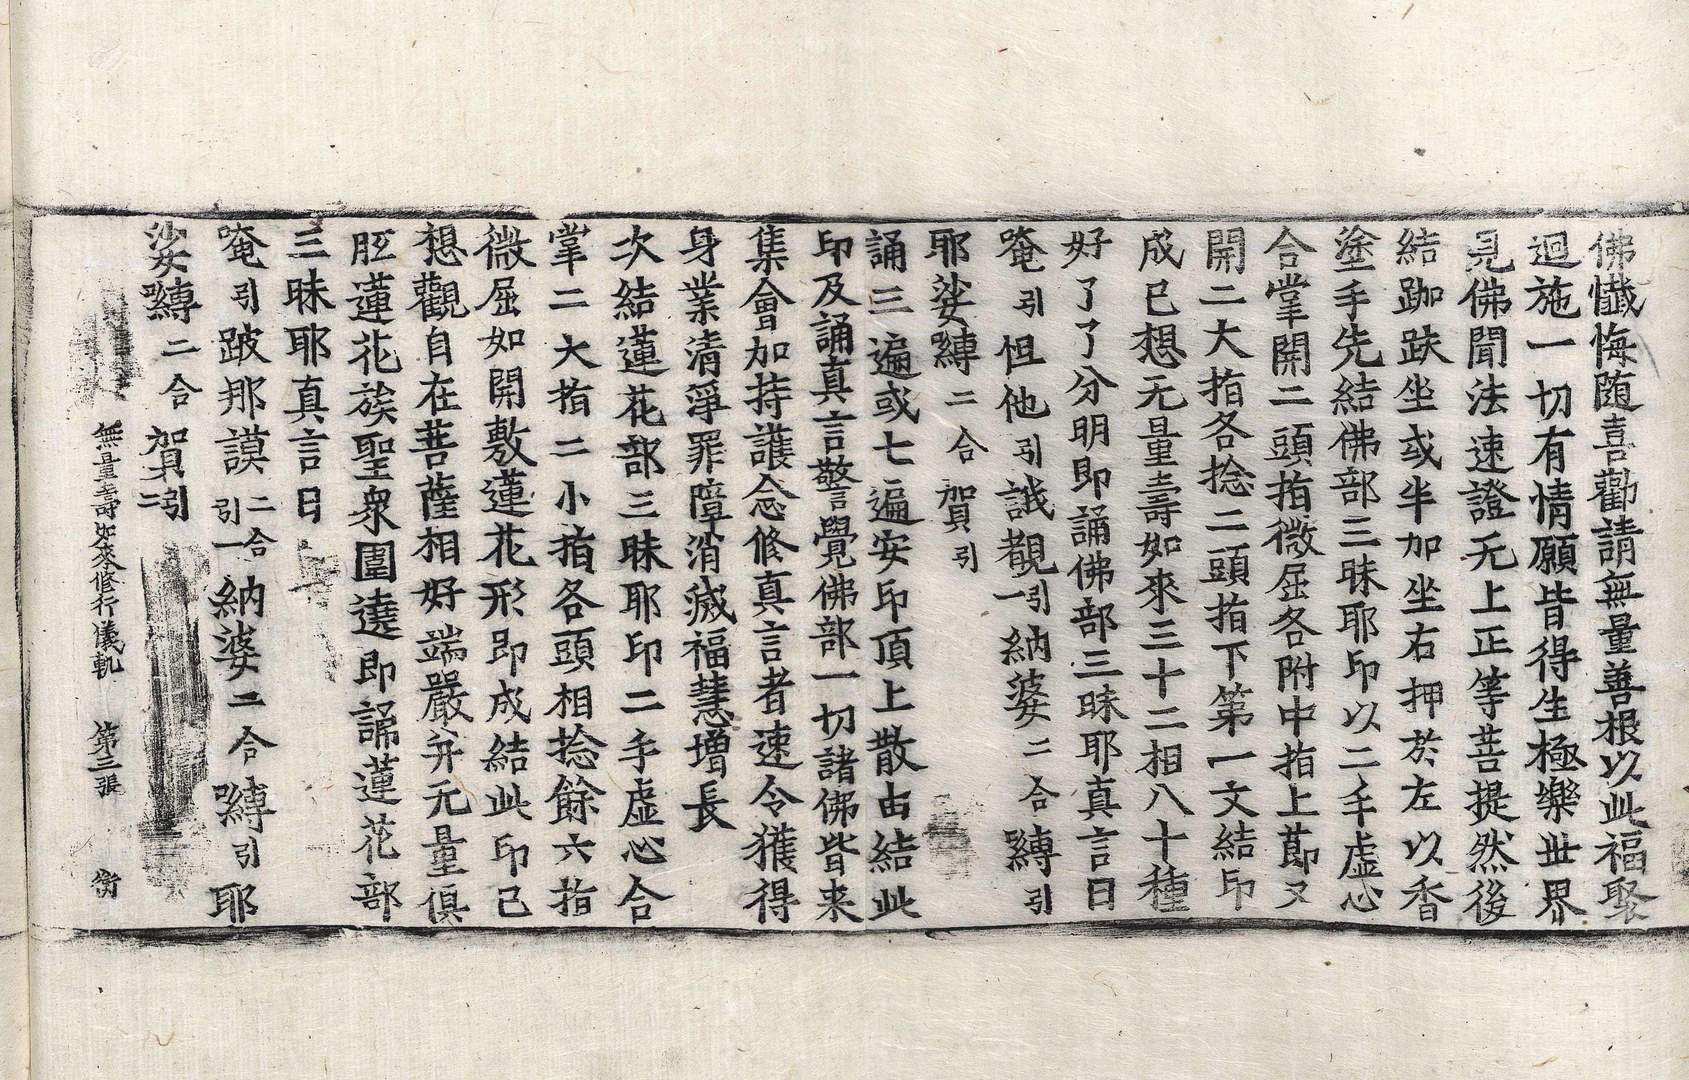 佛懺悔随喜勸請無量善根以此福聚
迴施一切有情願皆得生極樂世界
見佛聞法速證无上正等菩提然後
結跏趺坐或半加坐右押於左以香
塗手先結佛部三昧耶印以二手虚心
合掌開二頭指微屈各附中指上莭又
開二大指各捻二頭指下第一文結印
成已想无量壽如來三十二相八十種
好了了分明即誦佛部三昧耶真言曰
唵引怛他引誐覩引一納婆二合嚩引
耶娑嚩二合賀引
誦三遍或七遍安印頂上散由結此
印及誦真言警覺佛部一切諸佛皆来
集會加持護念修真言者速令獲得
身業清淨罪障消滅福慧増長
次結蓮花部三昧耶印二手虚心合
掌二大指二小指各頭相捻餘六指
微屈如開敷蓮花形即成結此印已
想觀自在菩薩相好端嚴并无量俱
胝蓮花族聖衆圍遶即誦蓮花部
三昧耶真言曰
唵引跛那謨二合引一納婆二合嚩引耶
娑嚩二合賀引二
無量壽如來修行儀軌 第三張 衡